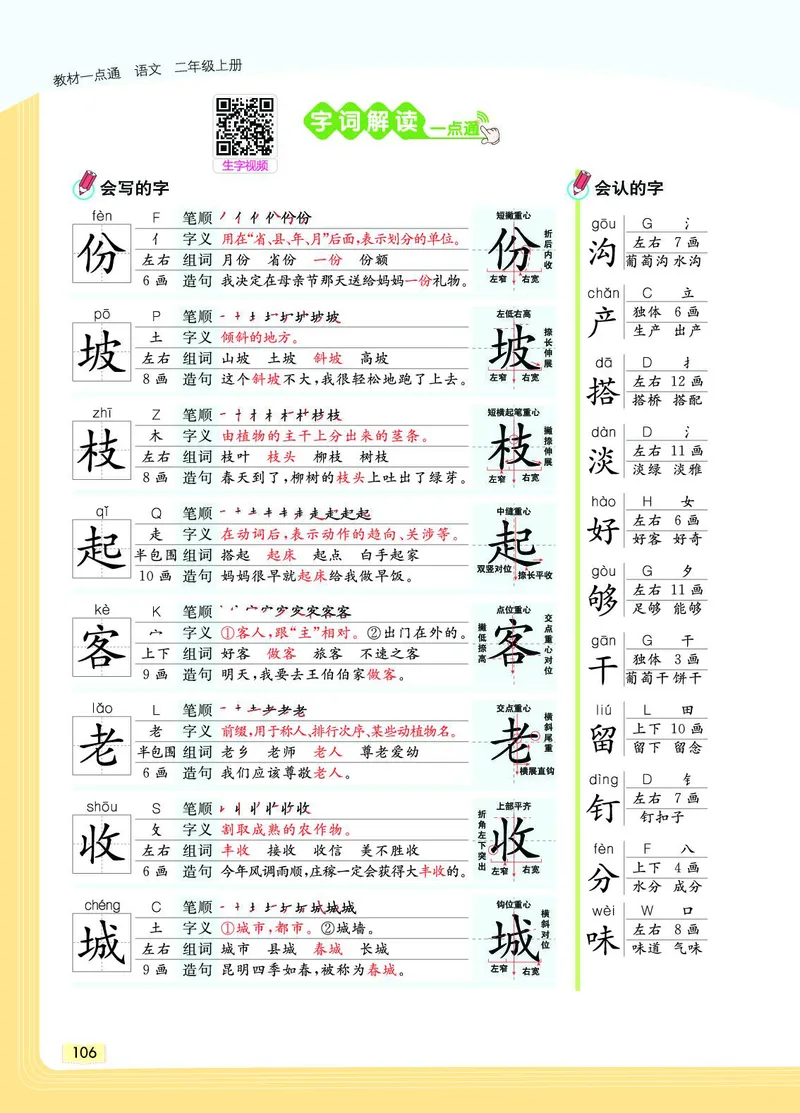 教材一点通 语文 二年级上册
字词解读一点通
生字视频
会写的字
fèn F 笔顺
份 亻 字义 用在“省、县、年、月”后面,表示划分的单位。
左右 组词 月份 省份 一份 份额
6 画 造句 我决定在母亲节那天送给妈妈一份礼物。
短撇重心
份
折后内收
左窄 右宽
pō P 笔顺
坡 土 字义 倾斜的地方。
左右 组词 山坡 土坡 斜坡 高坡
8 画 造句 这个斜坡不大,我很轻松地跑了上去。
左低右高
坡
捺长伸展
左窄 右宽
zhī Z 笔顺
枝 木 字义 由植物的主干上分出来的茎条。
左右 组词 枝叶 枝头 柳枝 树枝
8 画 造句 春天到了,柳树的枝头上吐出了绿芽。
短横起笔重心
枝
撇捺伸展
左窄 右宽
qǐ Q 笔顺
起 走 字义 在动词后,表示动作的趋向、关涉等。
半包围 组词 搭起 起床 起点 白手起家
10 画 造句 妈妈很早就起床给我做早饭。
中缝重心
起
双竖对位 捺长平收
kè K 笔顺
客 宀 字义 ①客人,跟“主”相对。②出门在外的。
上下 组词 好客 做客 旅客 不速之客
9 画 造句 明天,我要去王伯伯家做客。
点位重心
撇低捺高
客
交点重心对位
lǎo L 笔顺
老 老 字义 前缀,用于称人、排行次序、某些动植物名。
半包围 组词 老乡 老师 老人 尊老爱幼
6 画 造句 我们应该尊敬老人。
交点重心
老
横斜尾重
横展直钩
shōu S 笔顺
收 攵 字义 割取成熟的农作物。
左右 组词 丰收 接收 收信 美不胜收
6 画 造句 今年风调雨顺,庄稼一定会获得大丰收的。
上部平齐
折角左下突出
收
左窄 右宽
chéng C 笔顺
城 土 字义 ①城市,都市。②城墙。
左右 组词 城市 县城 春城 长城
9 画 造句 昆明四季如春,被称为春城。
钩位重心
城
横斜对位
左窄 右宽
会认的字
gōu G 氵
沟 左右 7 画
葡萄沟 水沟
chǎn C 立
产 独体 6 画
生产 出产
dā D 扌
搭 左右 12 画
搭桥 搭配
dàn D 氵
淡 左右 11 画
淡绿 淡雅
hào H 女
好 左右 6 画
好客 好奇
gòu G 夕
够 左右 11 画
足够 能够
gān G 干
干 独体 3 画
葡萄干 饼干
liú L 田
留 上下 10 画
留下 留念
dìng D 钅
钉 左右 7 画
钉扣子
fèn F 八
分 上下 4 画
水分 成分
wèi W 口
味 左右 8 画
味道 气味
106